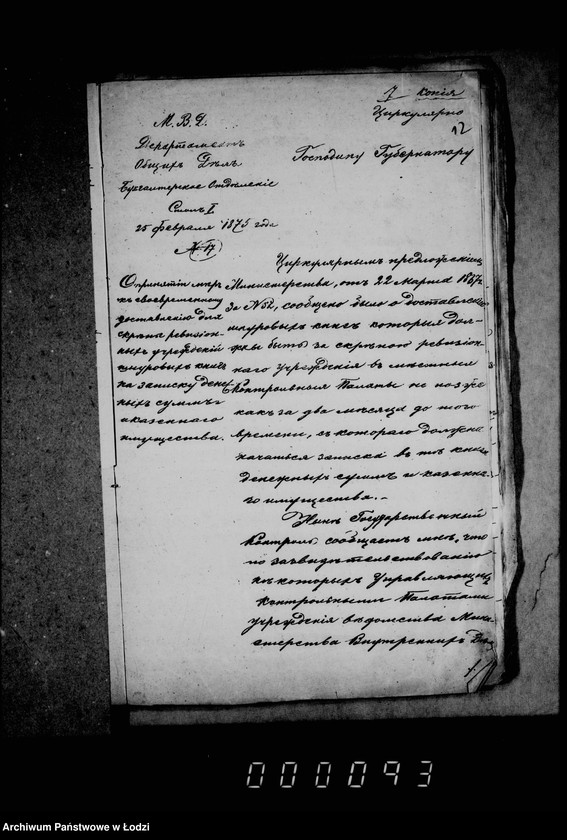 7 Копія
Циркулярно
12
М. В. Д.
Департаментъ
Общихъ Дѣлъ
Бухгалтерское Отдѣленіе
Столъ I
25 Февраля 1875 года
№ 17
Господину Губернатору
О принятіи мѣръ
къ своевременному
доставленію для
скрѣпы ревизіон-
ныхъ учрежденій
шнуровыхъ книгъ
на записку денеж-
ныхъ суммъ и
казеннаго
имущества.
Циркулярнымъ предложеніемъ
Министерства, отъ 22 Марта 1867 г.
за № 52, сообщено было о доставленіи
шнуровыхъ книгъ которыя дол-
жны быть за скрѣпою ревизіон-
наго учрежденія въ мѣстныя
Контрольныя Палаты не позже
какъ за два мѣсяца до того
времени, съ котораго должна
начаться записка въ тѣ книги
денежныхъ суммъ и казенна-
го имущества.
Нынѣ Государственный
Контроль сообщаетъ мнѣ, что
по засвидѣтельствованію
нѣкоторыхъ Управляющихъ
контрольными Палатами
учрежденія вѣдомства Мини-
стерства Внутреннихъ Дѣлъ
000093
Archiwum Państwowe w Łodzi